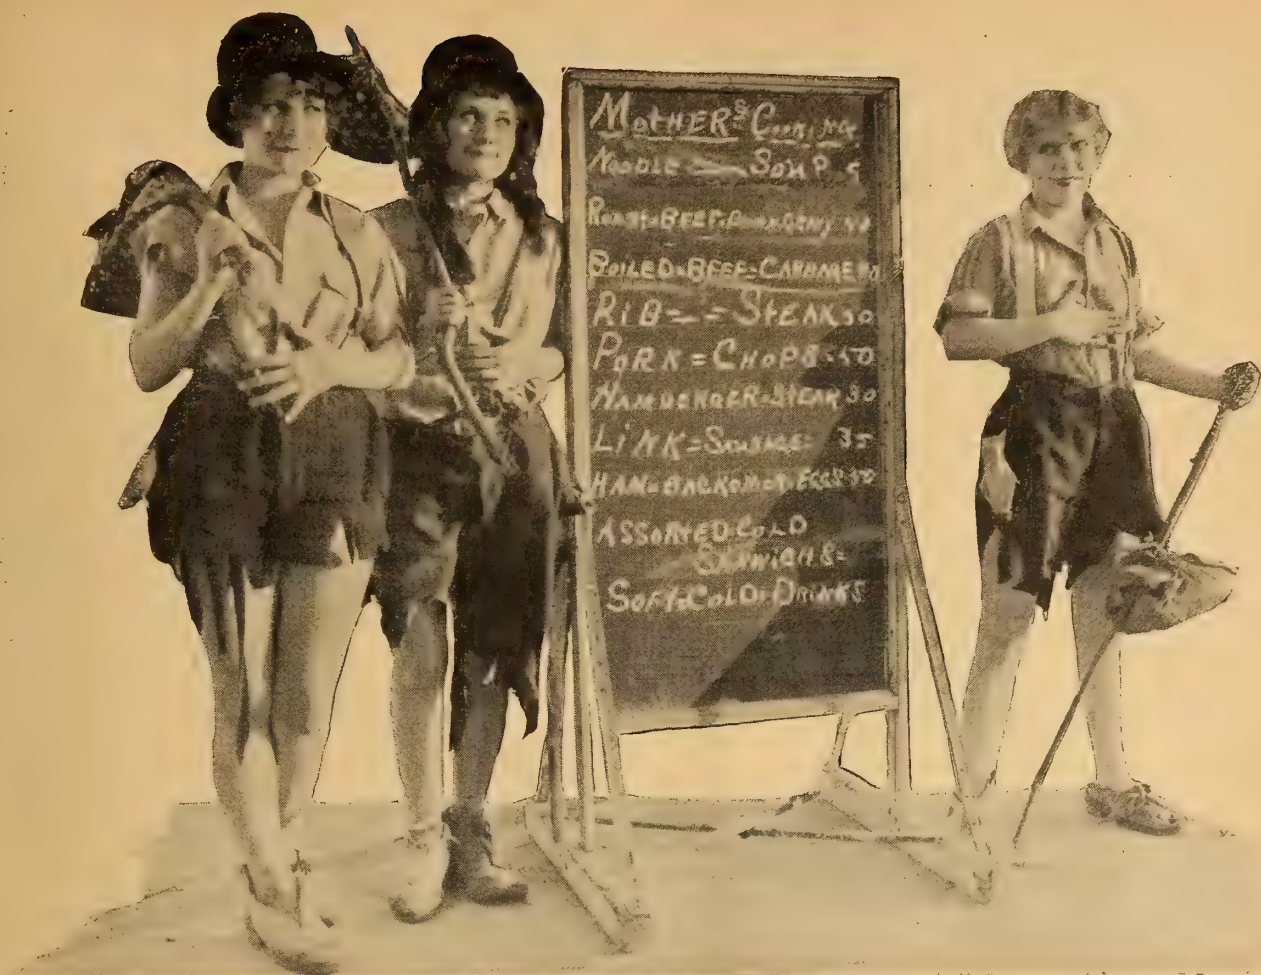 MOTHER'S COOKING
NOODLE SOUP
ROAST=BEEF
BOILED=BEEF=CABBAGE
RIB = STEAK 50
PORK = CHOPS 50
HAMBURGER=STEAK 30
LINK=SAUSAGE= 35
HAM=BACKON
ASSORTED COLD
SANWICHS=
SOFT=COLD=DRINKS